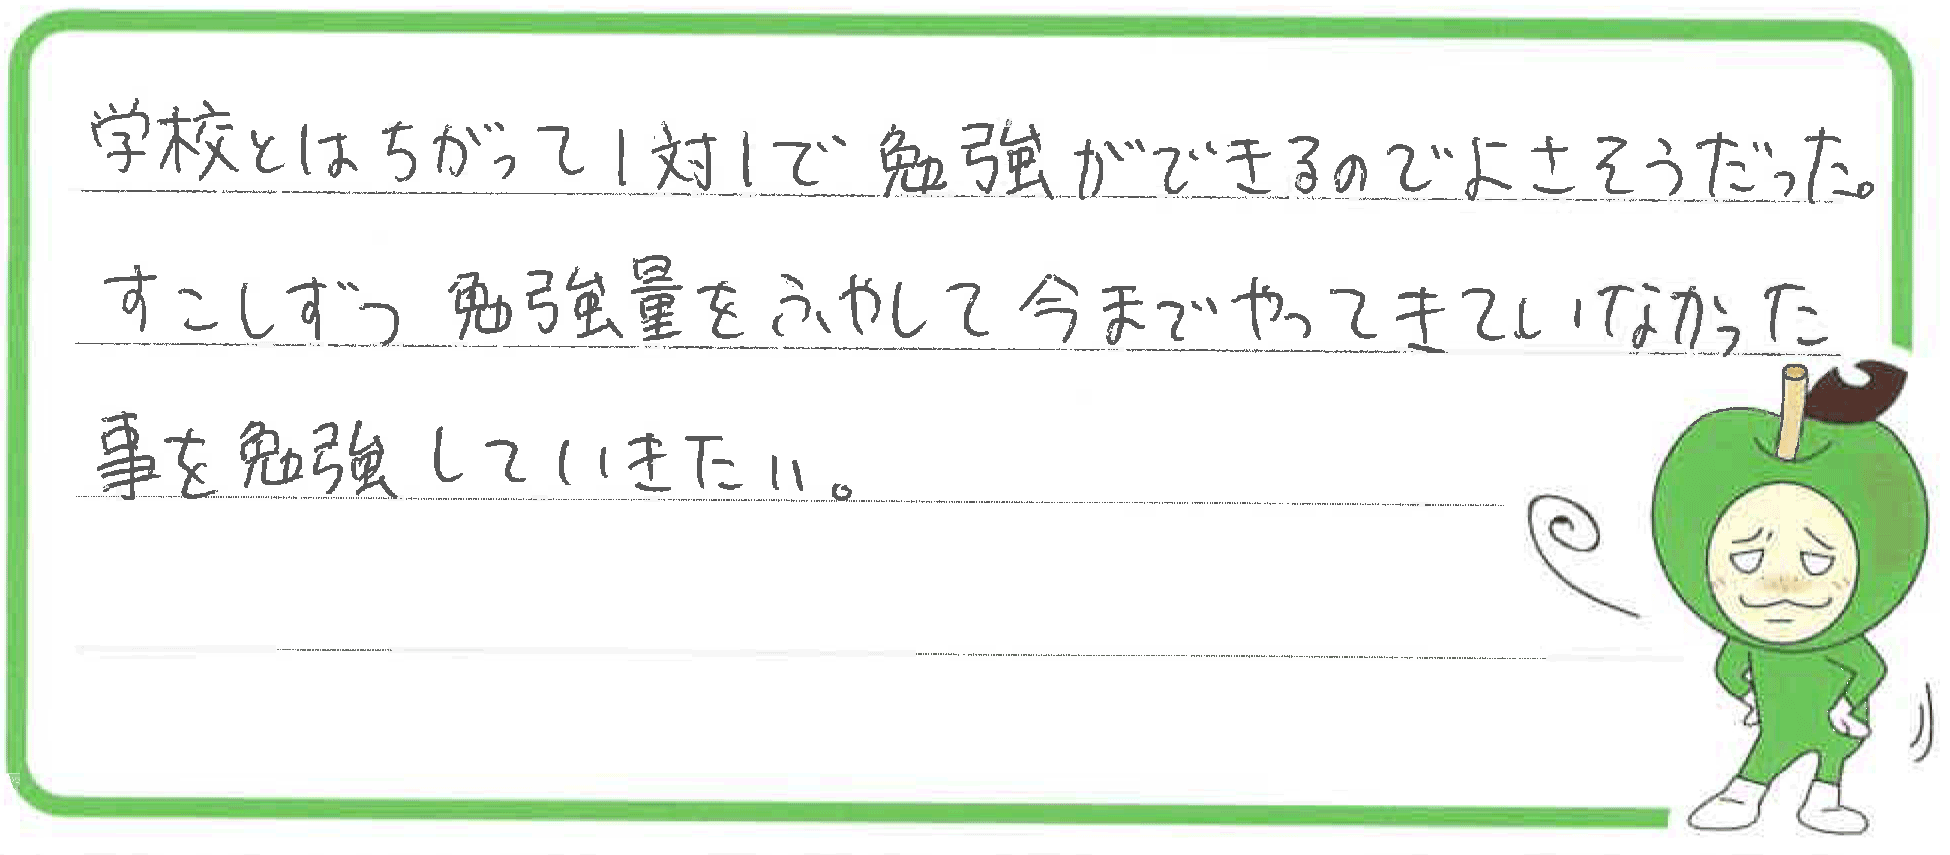 学校とはちがって1対1で勉強ができるのでよさそうだった。
すこしずつ勉強量をふやして今までやってきていなかった
事を勉強していきたい。